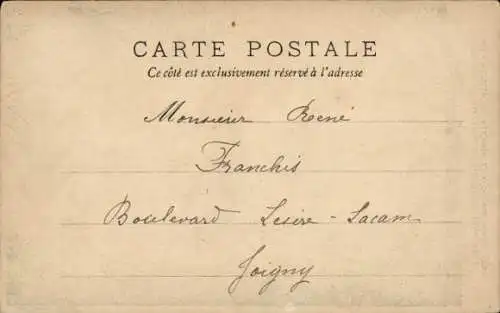 CARTE POSTALE
Ce côté est exclusivement réservé à l'adresse
Monsieur René
Franchis
Boulevard Lesire-Lacam
Joigny